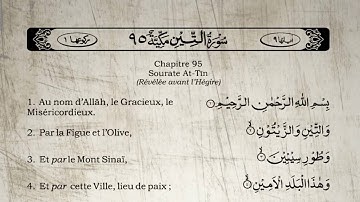 اٰیاتھا ۹
سُوْرَةُ التِّيْنِ مَكِّيَّةٌ ۹۵
رکوعھا ۱
Chapitre 95
Sourate At-Tîn
(Révélée avant l'Hégire)
1. Au nom d'Allâh, le Gracieux, le
Miséricordieux.
بِسْمِ اللّٰهِ الرَّحْمٰنِ الرَّحِيْمِ ①
2. Par la Figue et l'Olive,
وَالتِّيْنِ وَالزَّيْتُوْنِ ②
3. Et par le Mont Sinaï,
وَطُوْرِ سِيْنِيْنَ ③
4. Et par cette Ville, lieu de paix ;
وَهٰذَا الْبَلَدِ الْاَمِيْنِ ④